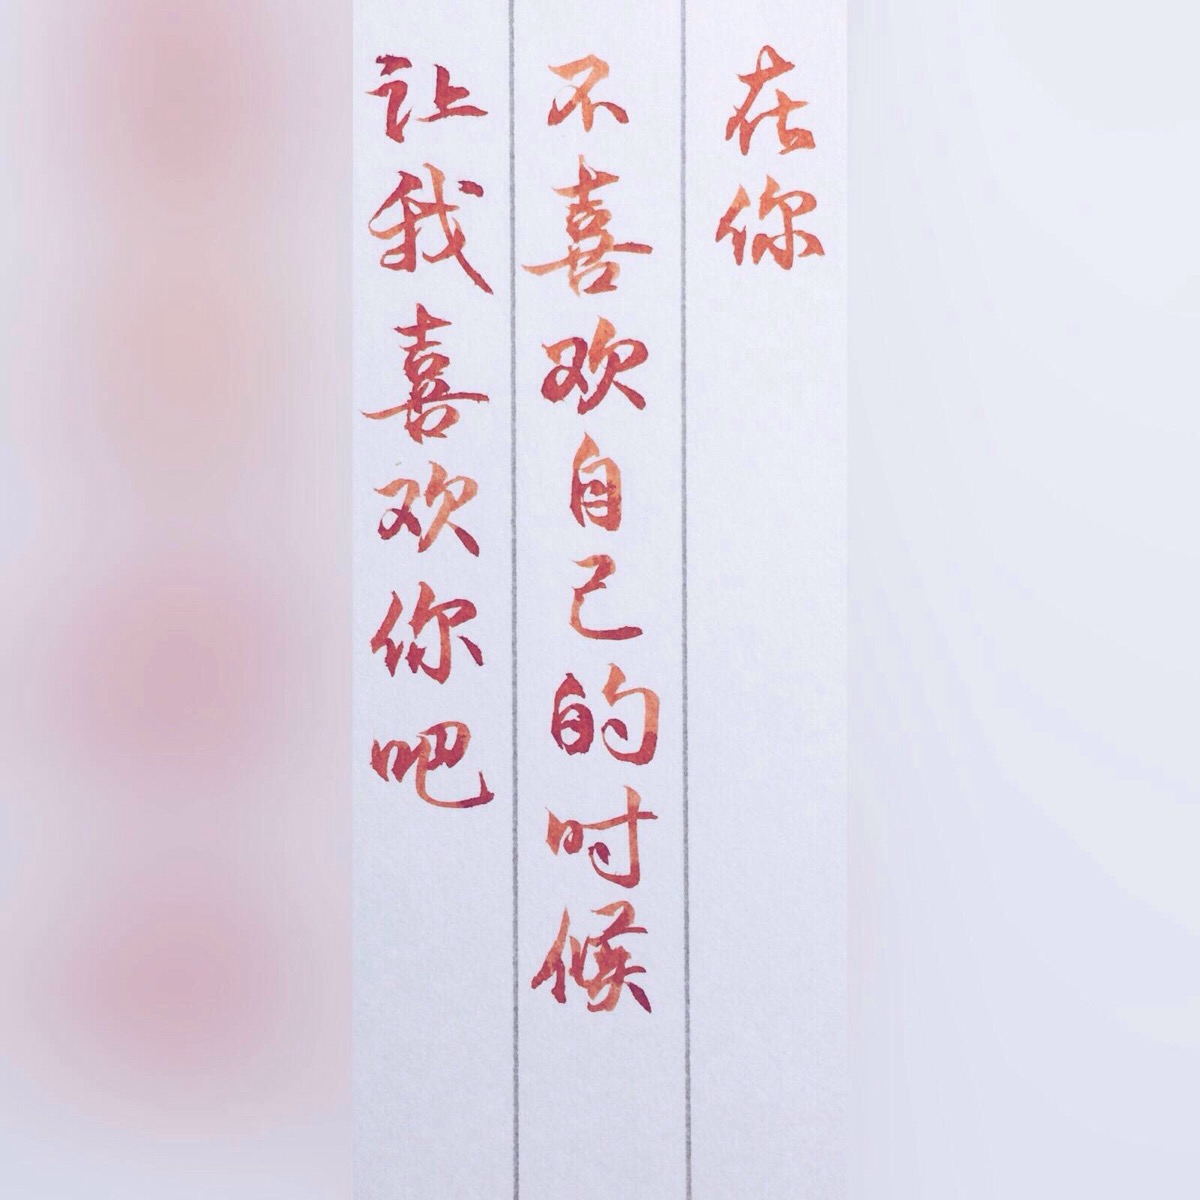 在你
不喜欢自己的时候
让我喜欢你吧